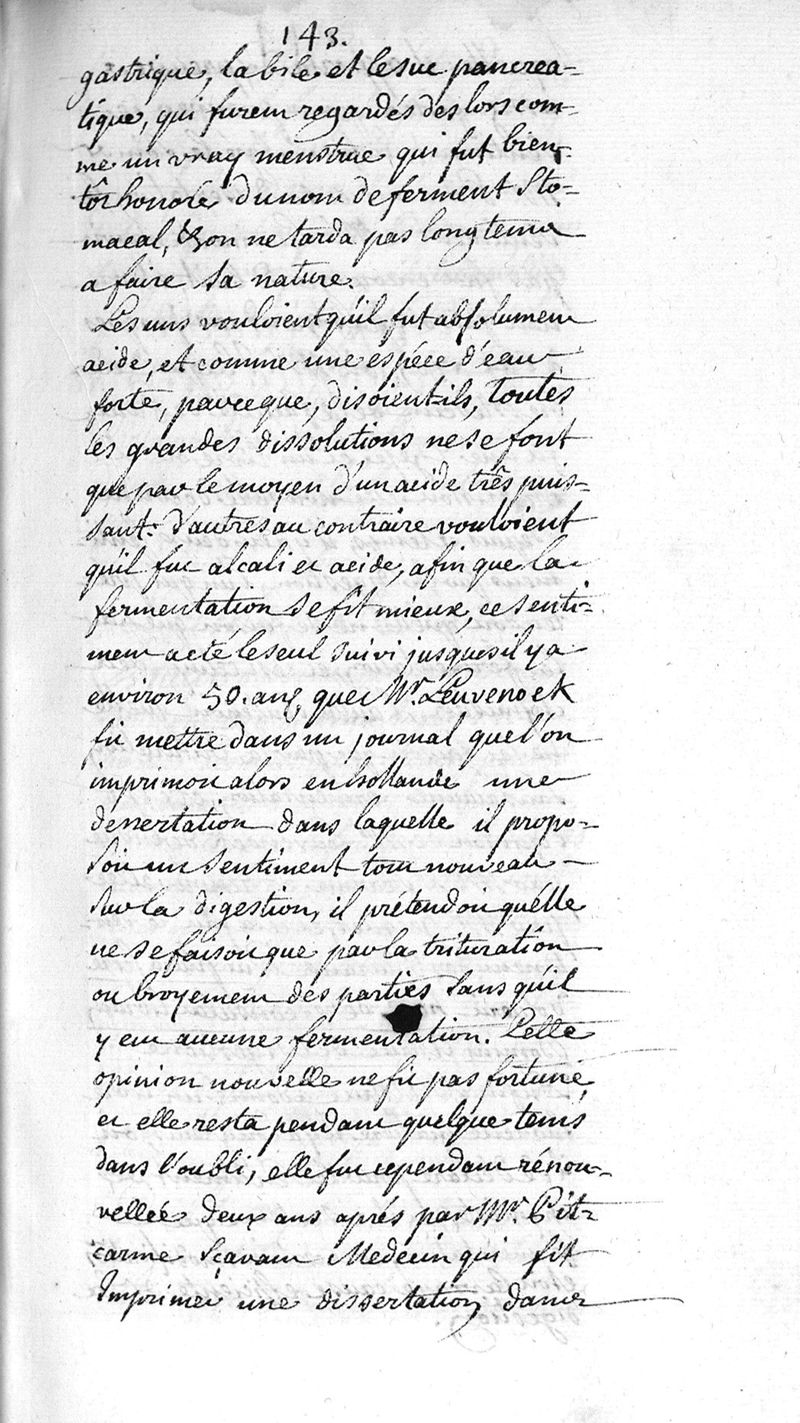 143.
gastrique, la bile et le suc pancrea-
tique, qui furent regardés des lors com-
me un vray menstrue qui fut bien-
tôt honoré du nom de ferment Sto-
macal, & on ne tarda pas longtems
a faire sa nature.
Les uns vouloient qu'il fut absolument
acide, et comme une espéce d'eau
forte, parceque, disoient-ils, toutes
les grandes dissolutions ne se font
que par le moyen d'un acide três puis-
sant. d'autres au contraire vouloient
qu'il fut alcali et acide, afin que la
fermentation se fît mieux, ce senti-
ment a eté le seul suivi jusques il y a
environ 50. ans, que Mr. Leuvenoek
fit mettre dans un journal que l'on
imprimoit alors en hollande une
dessertation dans laquelle il propo-
soit un sentiment tout nouveau
sur la digestion, il prétendoit qu'élle
ne se faisoit que par la trituration
ou broyement des parties sans qu'il
y eut aucune fermentation. Cette
opinion nouvelle ne fit pas fortune,
et elle resta pendant quelque tems
dans l'oubli, elle fut cependant rénou-
vellée deux ans aprés par Mr. Pit-
carme Sçavant Medecin qui fit
Imprimer une dissertation dans